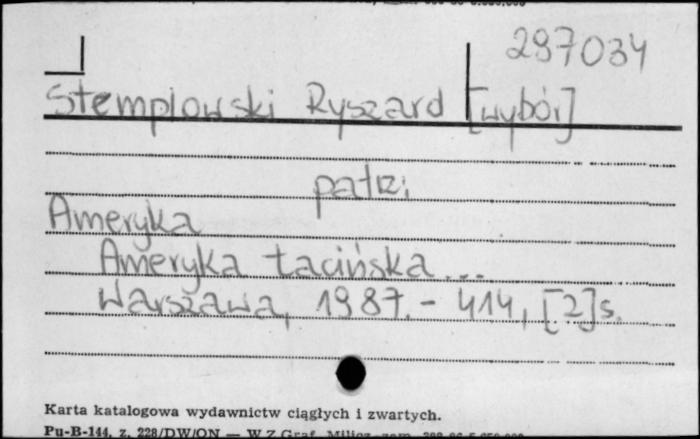 297034
Stemplowski Ryszard [wybór]
patrz:
Ameryka
Ameryka Łacińska...
Warszawa, 1987. - 414, [2] s.
Karta katalogowa wydawnictw ciągłych i zwartych.
Pu-B-144, z. 228/DW/ON — W.Z.Graf. Milicz, zam.